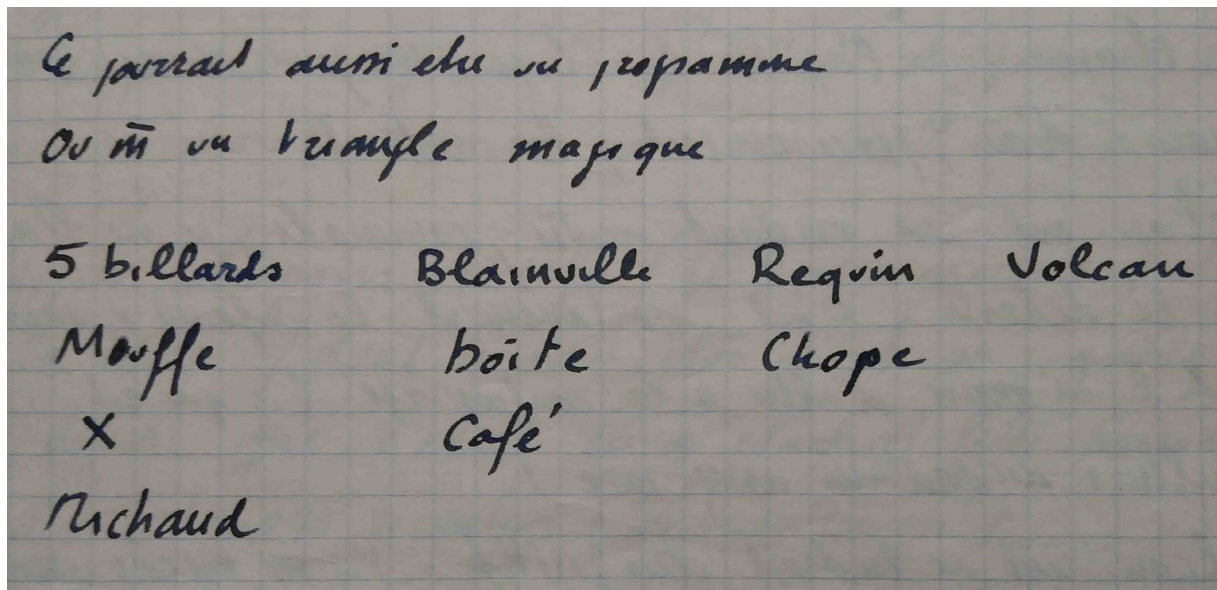 Ce pourrait aussi etre un programme
Ou m̅ un triangle magique
5 billards Blainville Requin Volcan
Mouffe boîte Chope
X Café
Michaud